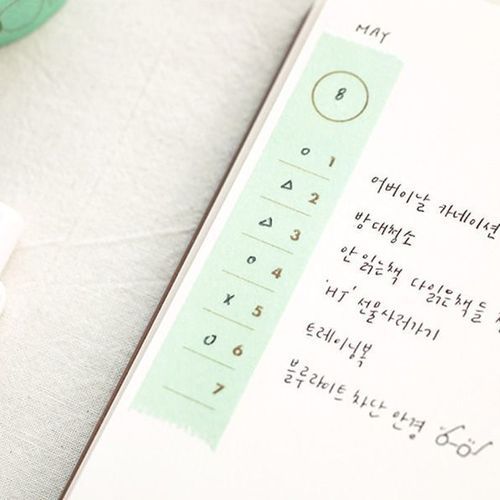 MAY
8
o 1 어버이날 카네이션
△ 2 방 대청소
△ 3 안 읽은책 다읽은책들
o 4 'HJ' 선물사러가기
x 5 트레이닝복
o 6 블루라이트 차단 안경
7